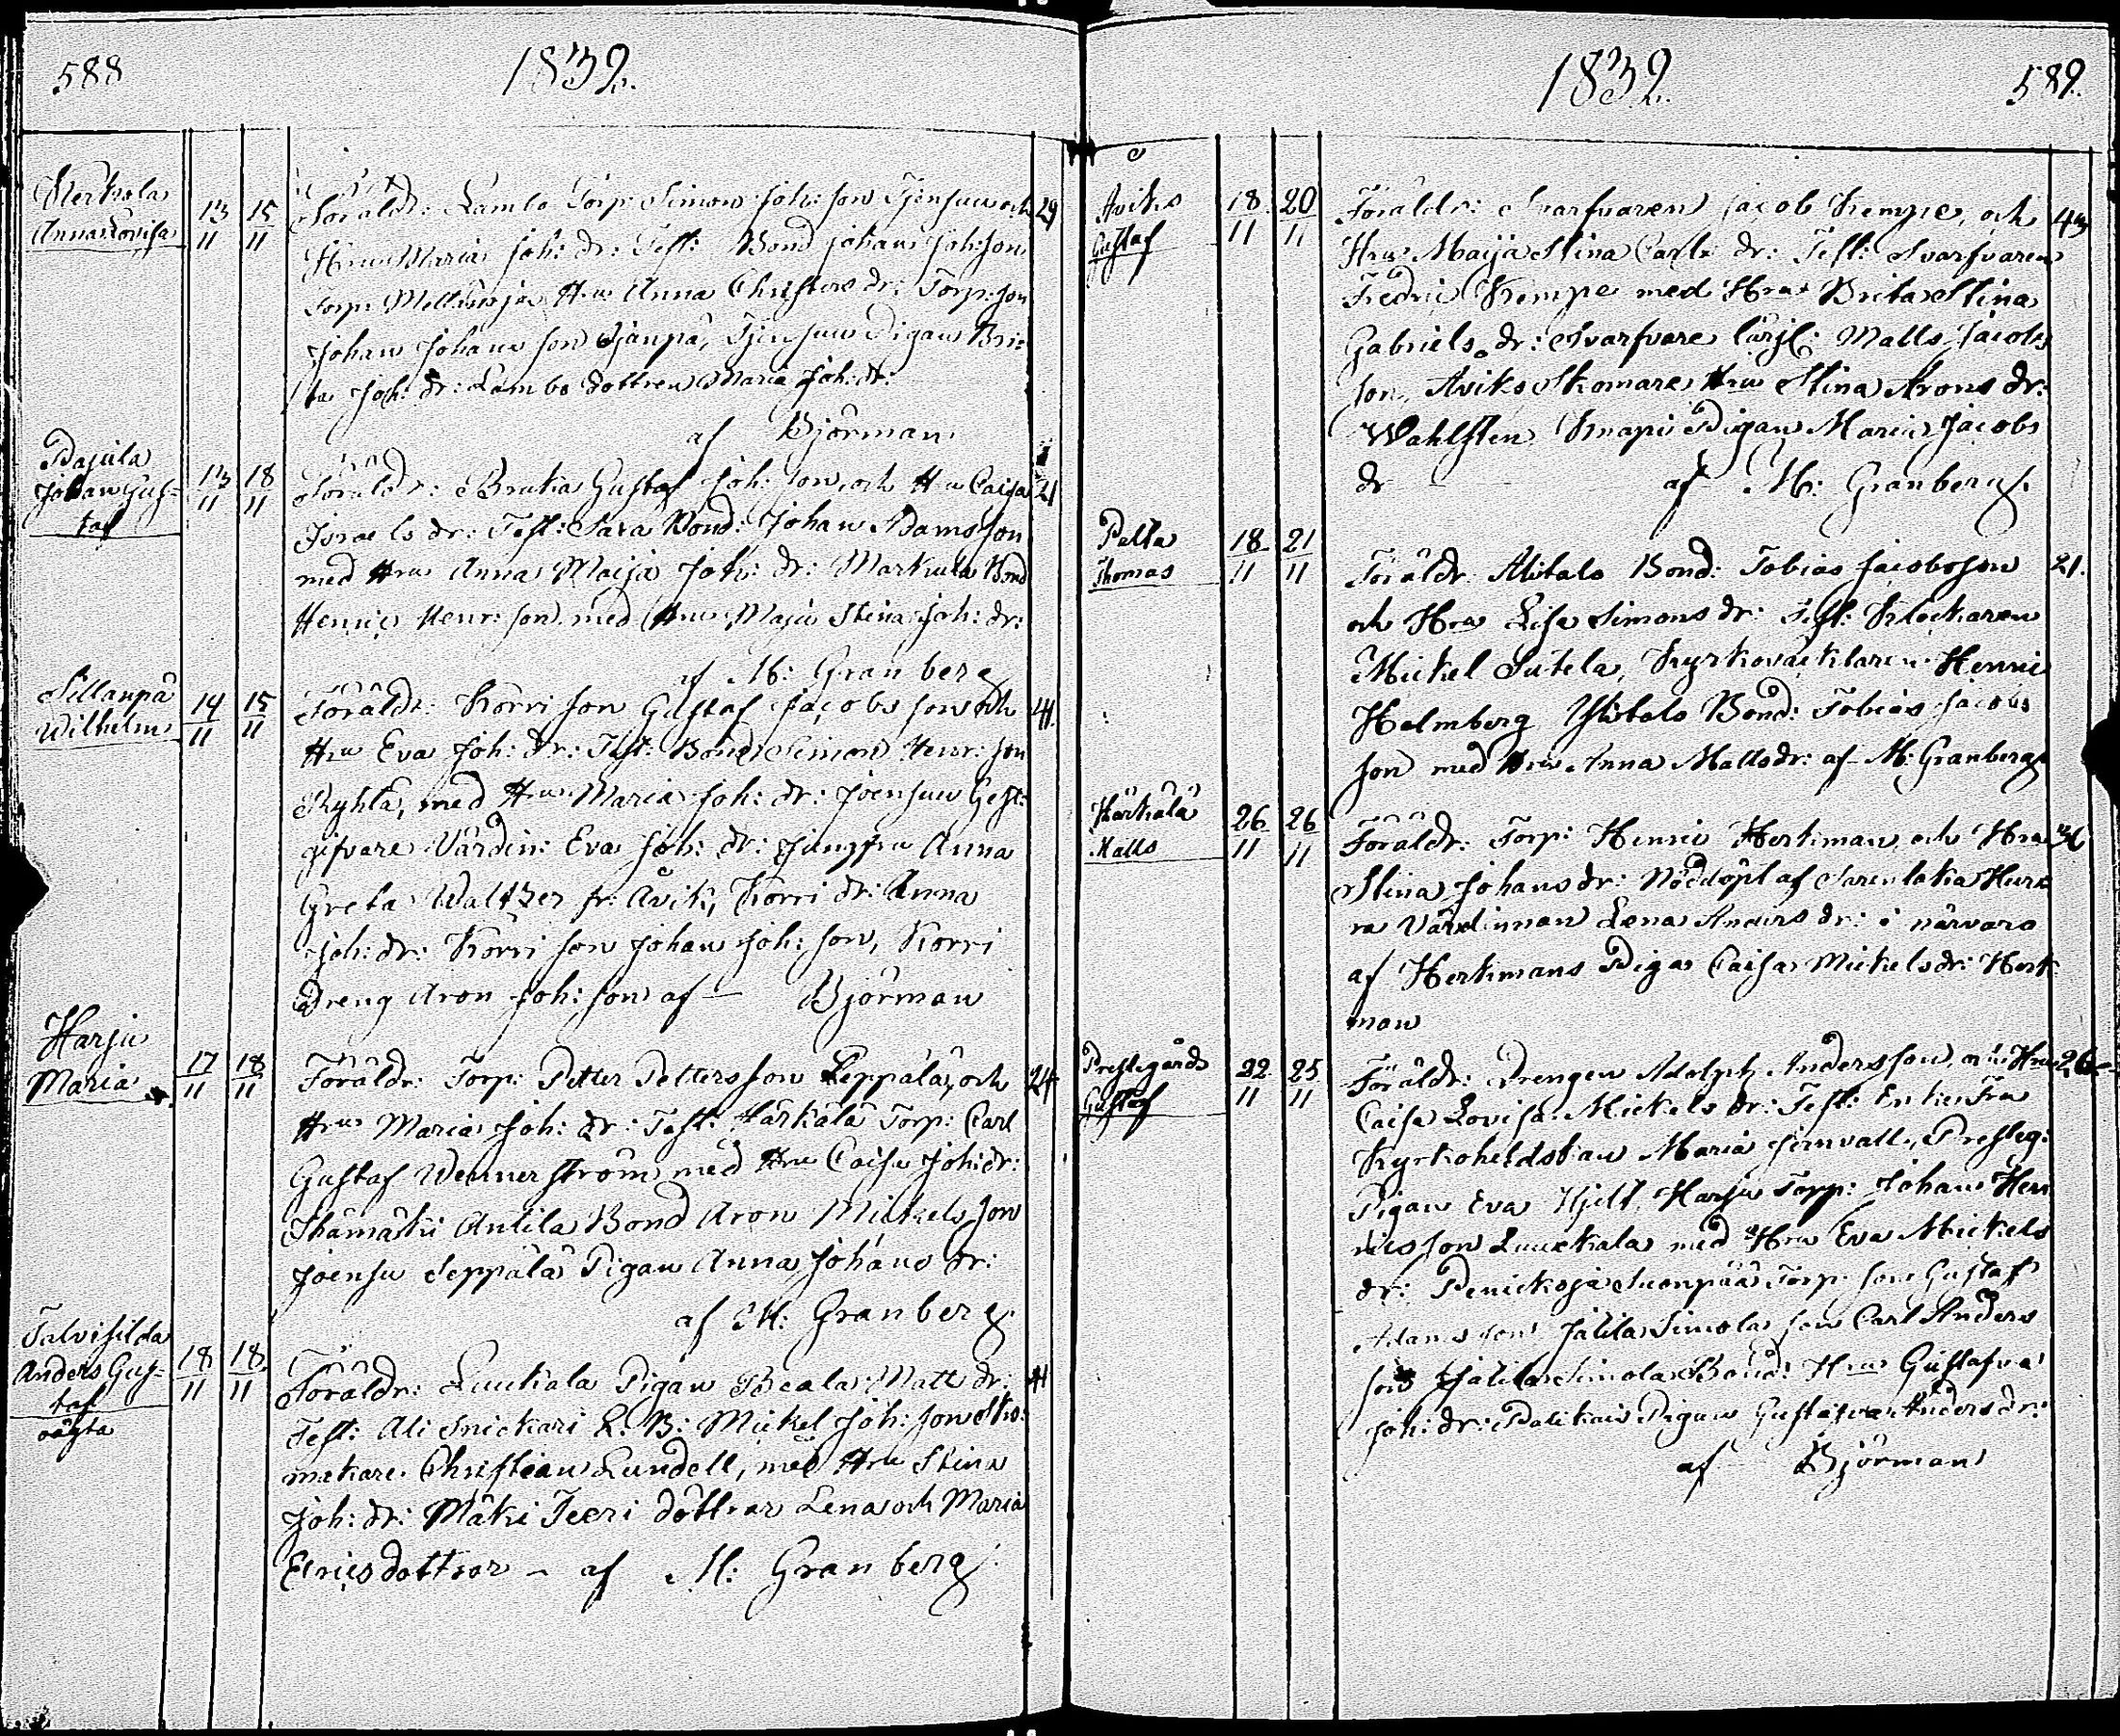 588
1832.
Merkola
Anna Lovisa
13/11 15/11
Föräldr: Lambo Torp: Simon Joh: son Tjensuu och 29
Hru Maria Joh: dr: Test: Bond Johan Joh: son
Torp: Hru Anna Christers dr: Torp: son
Johan Johans son Ojanpä, Pigan Bri-
ta Joh: dr: Lambo dottren Maria Joh: dr:
af Björman
Pajula
Johan Gus-
taf
13/11 18/11
Föräldr: Gustaf Joh: son och Hru Caisa 21
Israels dr: Test: Sara Bond: Johan Adams son
med Hru Anna Maija Joh: dr: Markula Bond
Henric Henr: son med Hru Maja Stina Joh: dr:
af M: Granberg
Sillanpä
Wilhelm
14/11 15/11
Föräldr: Korri son Gustaf Jacobs son och 41.
Hru Eva Joh: dr: Test: Bond: Simon Henr: son
Ryhtä, med Hru Maria Joh: dr: Joensuu Gest:
gifvare Värdin: Eva Joh: dr: Jungfru Anna
Greta Waltzer fr: Åvik, Korri dr: Anna
Joh: dr: Korri son Johan Joh: son, Korri
Dreng Aron Joh: son af — Björman
Harju
Maria
17/11 18/11
Föräldr: Torp: Petter Petters son Seppälä, och 24
Hru Maria Joh: dr: Test: Härkälä Torp: Carl
Gustaf Wennerström med Hru Caisa Joh: dr:
Ihamäki Antila Bond Aron Mickels son
Joensu Seppälä Pigan Anna Johans dr:
af M: Granberg
Talvisilda
Anders Gus-
taf
oägta
18/11 18/11
Föräldr: Luukala Pigan Beata Matt dr: 41
Test: Ali Snickari L. B: Mickel Joh: son Sko:
makare Christian Lundell, med Hru Stina
Joh: dr: Mäki Teeri döttrar Lena och Maria
Erics dottrar — af M: Granberg
1832
589.
Aviks
Gustaf
18/11 20/11
Föräldr: Svarfvaren Jacob Kempe, och 43
Hru Maija Stina Carls dr: Test: Svarfvaren
Fredric Kempe med Hru Brita Stina
Gabriels dr: Svarfvare lärjl: Matts Jacobs
son, Aviks Skomare Hru Stina Arons dr:
Wahlsten Knapi Pigan Maria Jacobs
dr af M: Granberg.
Palta
Thomas
18/11 21/11
Föräldr: Alitalo Bond: Tobias Jacobsson 21.
och Hru Lisa Simons dr: Test: Klockaren
Mickel Sutela, Kyrkoväcktaren Henric
Holmberg Ylitalo Bond: Tobias Jacobs
son med Hru Anna Matts dr: af M: Granberg
Härkälä
Matts
26/11 26/11
Föräldr: Torp: Henric Herkman och Hru
Stina Johans dr: Nöddöpt af
Värdinnan Lena Anders dr: i närvaro
af Herkmans Piga Caisa Mickels dr: Herk
man
Prestegårds
Gustaf
22/11 25/11
Föräldr: Drengen Adolph Anders son, och Hru 26
Caisa Lovisa Mickels dr: Test: Enke Fru
Maria Presteg:
Pigan Eva Hjelt, Harju Torp: Johan Hen
rics son Luukala med Hru Eva Mickels
dr: Penickoja Suonpää Torp: son Gustaf
Adams son Jalila Simola son Carl Anders
son Jalila Simola Bond: Hru Gustafva
Joh: dr: Palikais Pigan Gustafva Anders dr:
af Björman